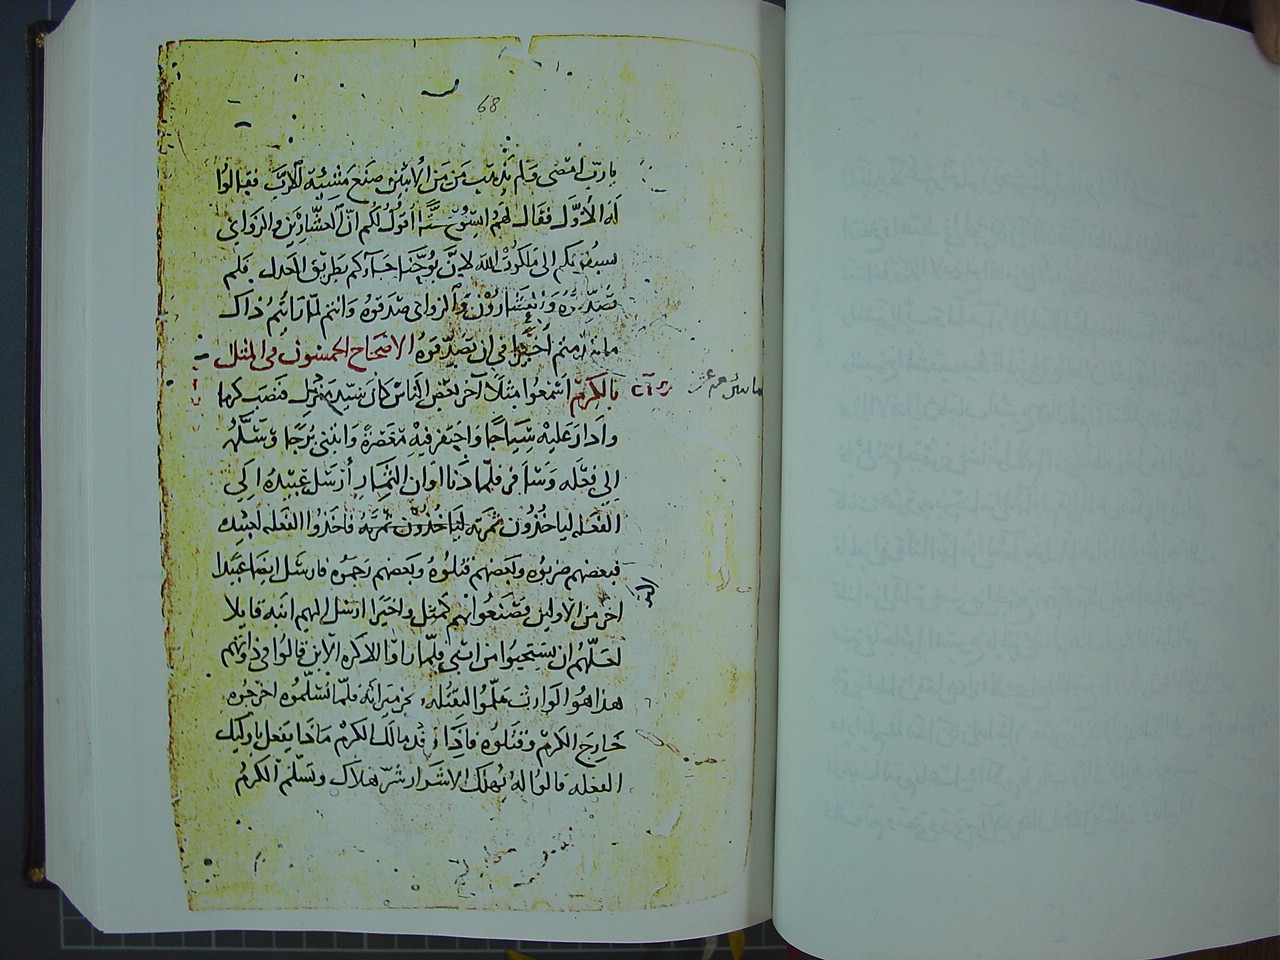 68
يا رب امضي ولم يذهب من من الابنين صنع مشيئة الاب فقالوا
له الأول فقال لهم ايسوع حقا اقول لكم ان العشارين والزواني
يسبقونكم الى ملكوت الله لان يوحنا جاءكم بطريق العدل فلم
تصدقوه والعشارون والزواني صدقوه وانتم لما رايتم ذاك
ما ندمتم أخيرا في ان تصدقوه الاصحاح الخمسون في المثل
بالكرم اسمعوا مثلا آخر بعض الناس كان سيد منزل فنصب كرما
وادار عليه سياجا واحتفر فيه معصرة وابتنى برجا وسلمه
الي فعله وسافر فلما دنا اوان الثمار أرسل عبيده الي
الفعله لياخذون ثمرته لياخذون ثمرته فاخذوا الفعله لعبيده
فبعضهم ضربوه وبعضهم قتلوه وبعضهم رجموه فارسل ايضا عبيدا
اخر من الاولين فصنعوا بهم كمثل واخيرا ارسل اليهم ابنه قايلا
لعلهم ان يستحيوا من ابني فلما راوا الاكره الابن قالوا في ذواتهم
هذا هو الوارث هلموا لنقتله نحز ميراثه فلما تسلموه اخرجوه
خارج الكرم وقتلوه فاذا قدم مالك الكرم ماذا يفعل باوليك
الفعله قالوا له يهلك الاشرار شر هلاك ويسلم الكرم